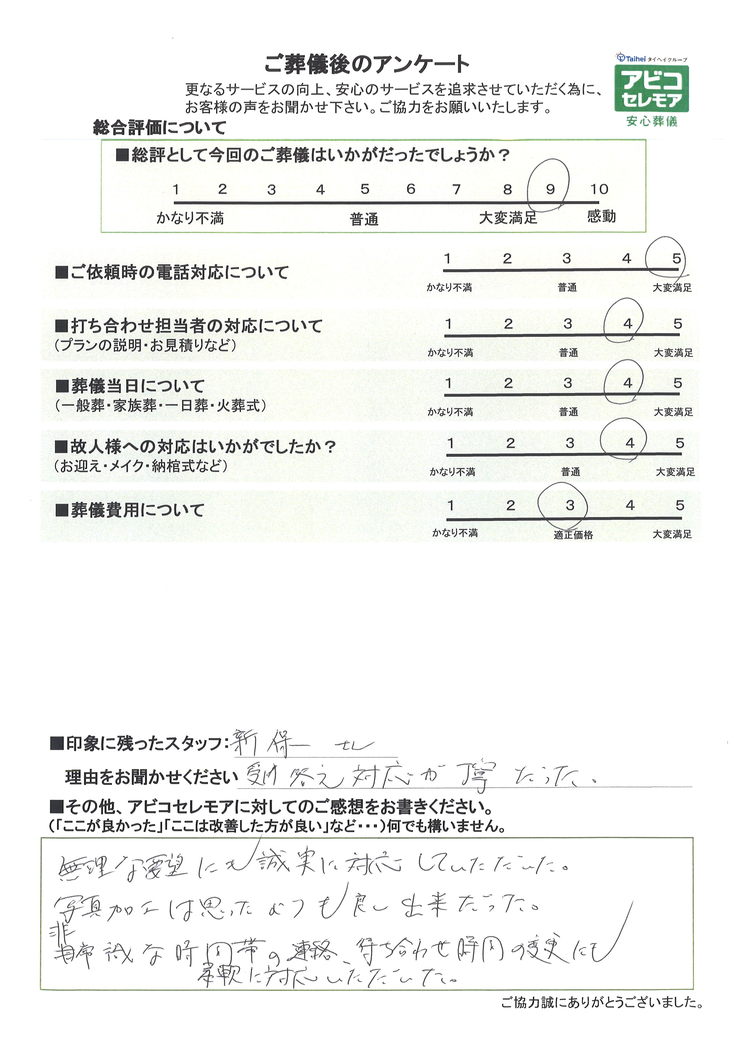 ご葬儀後のアンケート
Taihei タイヘイグループ
アビコ
セレモア
安心葬儀
更なるサービスの向上、安心のサービスを追求させていただく為に、
お客様の声をお聞かせ下さい。ご協力をお願いいたします。
総合評価について
■総評として今回のご葬儀はいかがだったでしょうか？
1 2 3 4 5 6 7 8 9 10
かなり不満 普通 大変満足 感動
■ご依頼時の電話対応について
1 2 3 4 5
かなり不満 普通 大変満足
■打ち合わせ担当者の対応について
（プランの説明・お見積りなど）
1 2 3 4 5
かなり不満 普通 大変満足
■葬儀当日について
（一般葬・家族葬・一日葬・火葬式）
1 2 3 4 5
かなり不満 普通 大変満足
■故人様への対応はいかがでしたか？
（お迎え・メイク・納棺式など）
1 2 3 4 5
かなり不満 普通 大変満足
■葬儀費用について
1 2 3 4 5
かなり不満 適正価格 大変満足
■印象に残ったスタッフ：新保
理由をお聞かせください 受け答え対応が丁寧だった。
■その他、アビコセレモアに対してのご感想をお書きください。
（「ここが良かった」「ここは改善した方が良い」など・・・）何でも構いません。
無理な要望にも誠実に対応していただいた。
写真加工は思ったよりも良い出来だった。
非常識な時間帯の連絡、待ち合わせ時間の変更にも
柔軟に対応いただいた。
ご協力誠にありがとうございました。